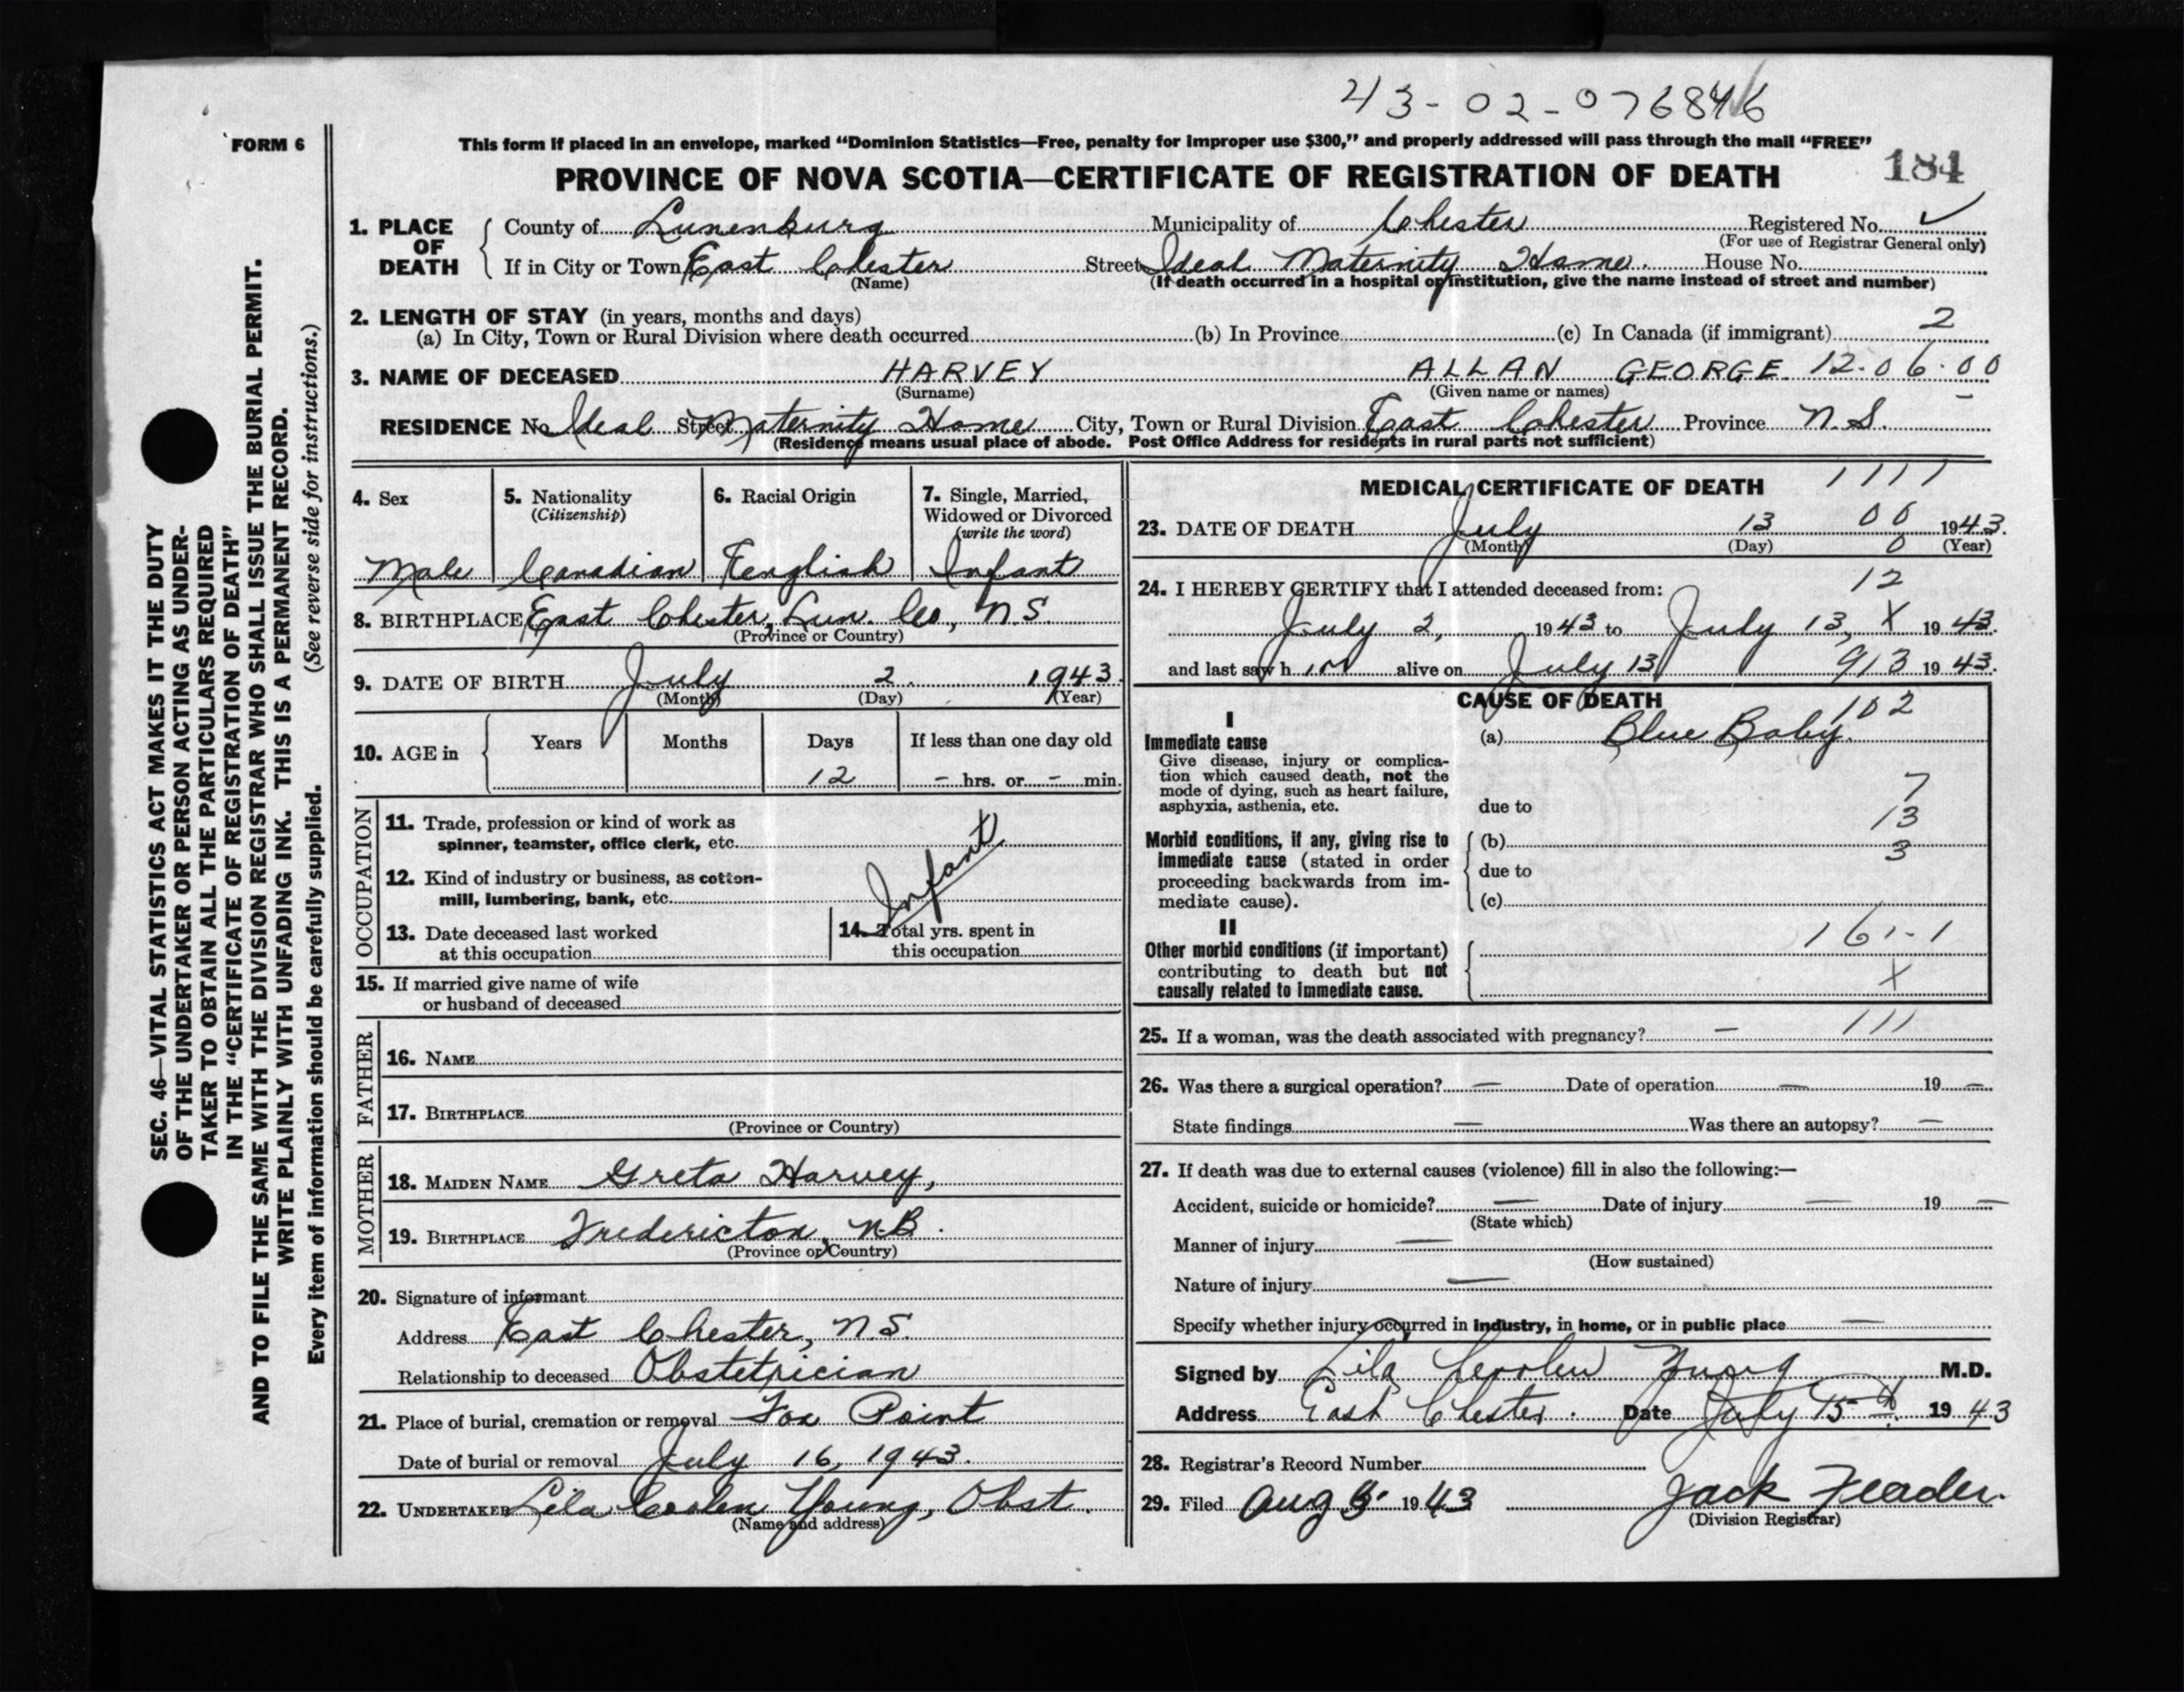 43-02-076846
FORM 6
This form if placed in an envelope, marked "Dominion Statistics—Free, penalty for improper use $300," and properly addressed will pass through the mail "FREE"
PROVINCE OF NOVA SCOTIA—CERTIFICATE OF REGISTRATION OF DEATH 184
1. PLACE OF DEATH County of Lunenburg Municipality of Chester Registered No. ✓
(For use of Registrar General only)
If in City or Town East Chester Street Ideal Maternity Home. House No.
(Name) (If death occurred in a hospital or institution, give the name instead of street and number)
2. LENGTH OF STAY (in years, months and days)
(a) In City, Town or Rural Division where death occurred (b) In Province (c) In Canada (if immigrant) 2
3. NAME OF DECEASED HARVEY ALLAN GEORGE 12.06.00
(Surname) (Given name or names)
RESIDENCE No. Ideal Street Maternity Home City, Town or Rural Division East Chester Province N.S.
(Residence means usual place of abode. Post Office Address for residents in rural parts not sufficient)
4. Sex
Male
5. Nationality
(Citizenship)
Canadian
6. Racial Origin
English
7. Single, Married,
Widowed or Divorced
(write the word)
Infant
8. BIRTHPLACE East Chester, Lun. Co, N.S.
(Province or Country)
9. DATE OF BIRTH July 2. 1943
(Month) (Day) (Year)
10. AGE in Years Months Days If less than one day old
12 – hrs. or – min.
OCCUPATION
11. Trade, profession or kind of work as
spinner, teamster, office clerk, etc.
Infant
12. Kind of industry or business, as cotton-
mill, lumbering, bank, etc.
13. Date deceased last worked
at this occupation
14. Total yrs. spent in
this occupation
15. If married give name of wife
or husband of deceased
FATHER
16. NAME
17. BIRTHPLACE
(Province or Country)
MOTHER
18. MAIDEN NAME Greta Harvey,
19. BIRTHPLACE Fredericton, N.B.
(Province or Country)
20. Signature of informant
Address East Chester, N.S.
Relationship to deceased Obstetrician
21. Place of burial, cremation or removal Fox Point
Date of burial or removal July 16, 1943.
22. UNDERTAKER Lila Coolen Young, Obst.
(Name and address)
MEDICAL CERTIFICATE OF DEATH 1111
23. DATE OF DEATH July 13 00 1943.
(Month) (Day) 0 (Year)
24. I HEREBY CERTIFY that I attended deceased from: 12
July 2, 1943 to July 13, X 1943.
and last saw h im alive on July 13 913 1943.
CAUSE OF DEATH 102
I
Immediate cause
Give disease, injury or complica-
tion which caused death, not the
mode of dying, such as heart failure,
asphyxia, asthenia, etc.
(a) Blue Baby.
7
due to
13
Morbid conditions, if any, giving rise to
immediate cause (stated in order
proceeding backwards from im-
mediate cause).
(b)
3
due to
(c)
II
Other morbid conditions (if important)
contributing to death but not
causally related to immediate cause.
161-1
X
25. If a woman, was the death associated with pregnancy? – 111
26. Was there a surgical operation? — Date of operation — 19 —
State findings — Was there an autopsy? —
27. If death was due to external causes (violence) fill in also the following:—
Accident, suicide or homicide? — Date of injury — 19 —
(State which)
Manner of injury —
(How sustained)
Nature of injury —
Specify whether injury occurred in industry, in home, or in public place —
Signed by Lila Coolen Young M.D.
Address East Chester. Date July 15th. 1943
28. Registrar's Record Number
29. Filed Aug 1943 Jack
(Division Registrar)
SEC. 46—VITAL STATISTICS ACT MAKES IT THE DUTY
OF THE UNDERTAKER OR PERSON ACTING AS UNDER-
TAKER TO OBTAIN ALL THE PARTICULARS REQUIRED
IN THE "CERTIFICATE OF REGISTRATION OF DEATH"
AND TO FILE THE SAME WITH THE DIVISION REGISTRAR WHO SHALL ISSUE THE BURIAL PERMIT.
WRITE PLAINLY WITH UNFADING INK. THIS IS A PERMANENT RECORD.
Every item of information should be carefully supplied. (See reverse side for instructions.)